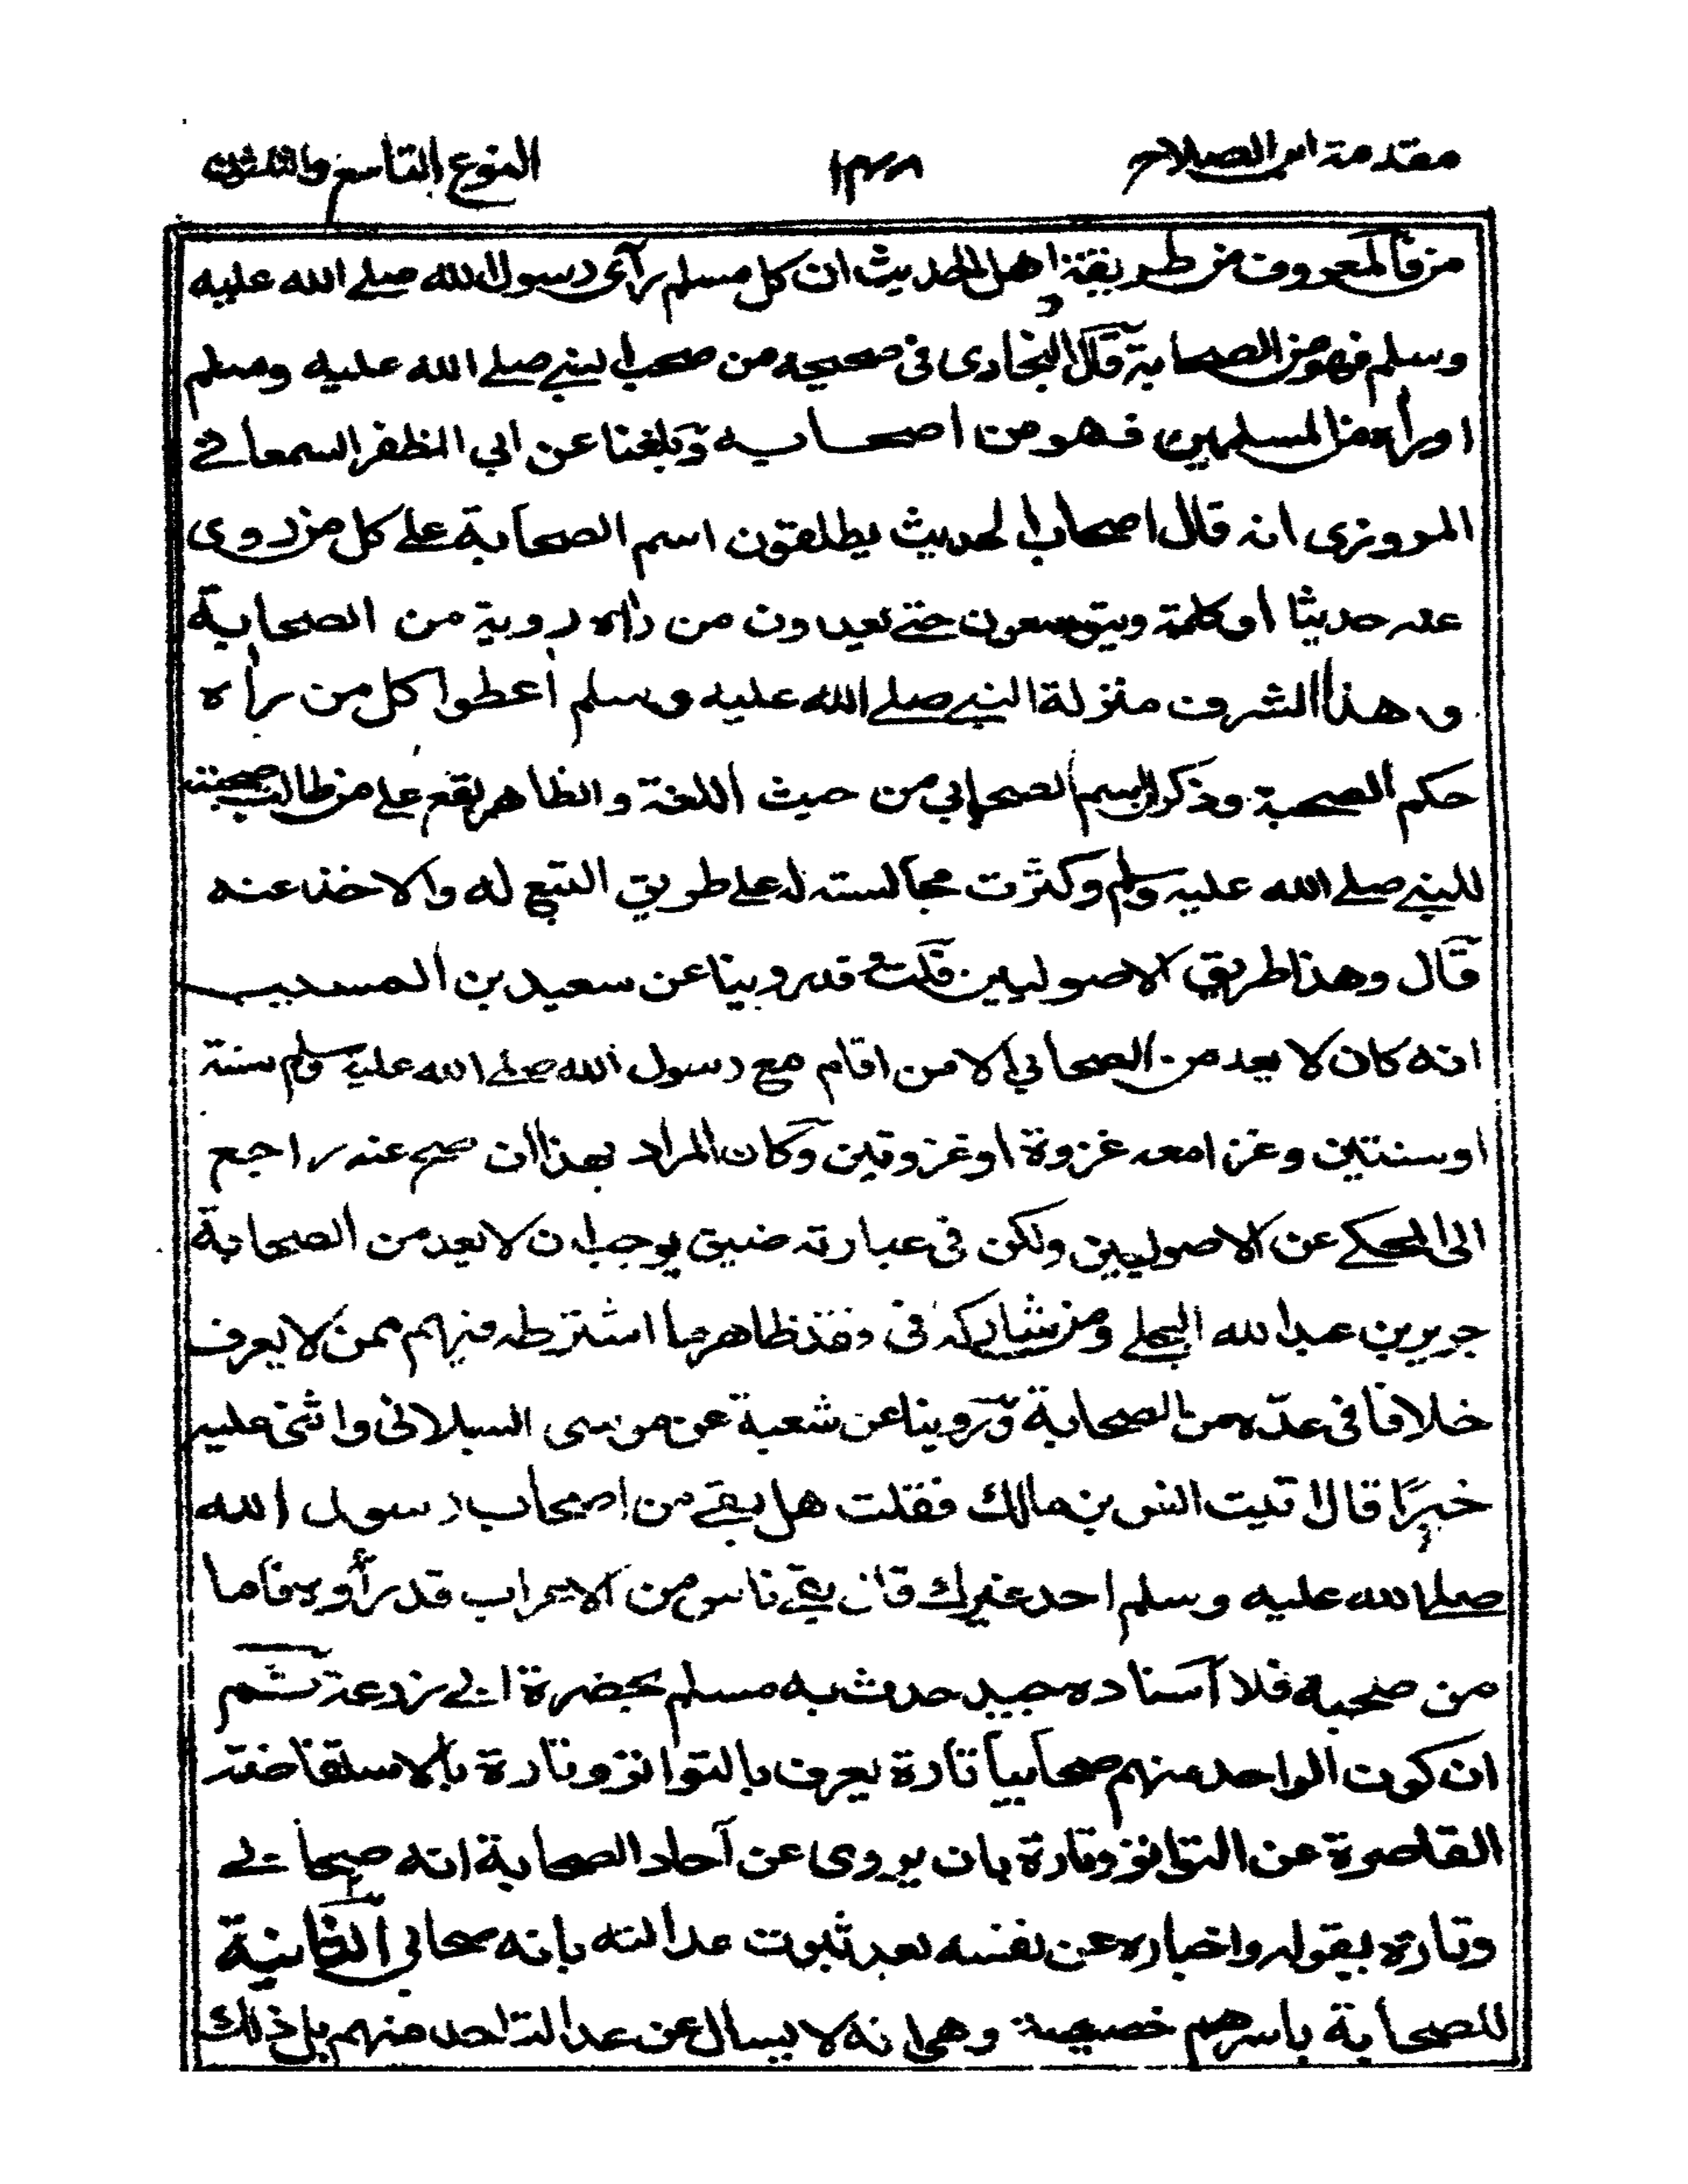 مقدمة ابن الصلاح
النوع التاسع والثلثون
من فالمعروف من طريقة اهل الحديث ان كل مسلم رآى رسول الله صلے الله عليه
وسلم فهو من الصحابة قال البخارى فى صحيحه من صحب النبے صلے الله عليه وسلم
اوراٰه من المسلمين فهو من اصحابه وبلغنا عن ابي المظفر السمعانے
المروزى انه قال اصحاب الحديث يطلقون اسم الصحابة علے كل من روى
عنه حديثا أو كلمة ويتوسعون حتے يعدون من راٰه روية من الصحابة
وهذا الشرف منزلة النبے صلے الله عليه وسلم أعطوا كل من رأه
حكم الصحبة وذكر ان اسم الصحابي من حيث اللغة والظاهر يقع علے من طالت صحبته
للنبے صلے الله عليه وسلم وكثرت مجالسته له علے طريق التبع له والاخذ عنه
قال وهذا طريق الاصوليين قلت وقد روينا عن سعيد بن المسيب
انه كان لا يعد من الصحابي الا من اقام مع رسول الله صلے الله عليه وسلم سنة
اوسنتين وغزا معه غزوة اوغزوتين وكان المراد بهذا ان صح عنه راجع
الى المحكے عن الاصوليين ولكن فى عبارته ضيق يوجب ان لا يعد من الصحابة
جرير بن عبد الله البجلے ومن شاركه فى فقد ظاهر ما اشترطه فيهم ممن لا يعرف
خلافا فى عدّه من الصحابة وروينا عن شعبة عن موسى السبلانى واثنى عليه
خيرًا قال اتيت انس بن مالك فقلت هل بقے من اصحاب رسول الله
صلے الله عليه وسلم احد غيرك قال بقے ناس من الاعراب قد رأوه فاما
من صحبه فلا آسناده جيد حدث به مسلم بحضرة ابے زرعة ثم
ان كون الواحد منهم صحابيا تارة يعرف بالتواتر وتارة بالاستفاضة
القاصرة عن التواتر وتارة بان يروى عن آحاد الصحابة انه صحابے
وتارة بقوله واخباره عن نفسه بعد ثبوت عدالته بانه صحابي الثانية
للصحابة باسرهم خصيصة وهى انه لا يسال عن عدالة احد منهم بل ذلك